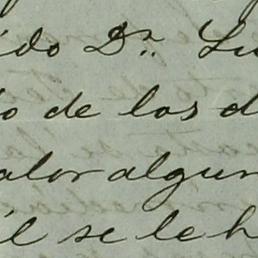 ido Dn. Lu
o de los d
alor algun
il se le h